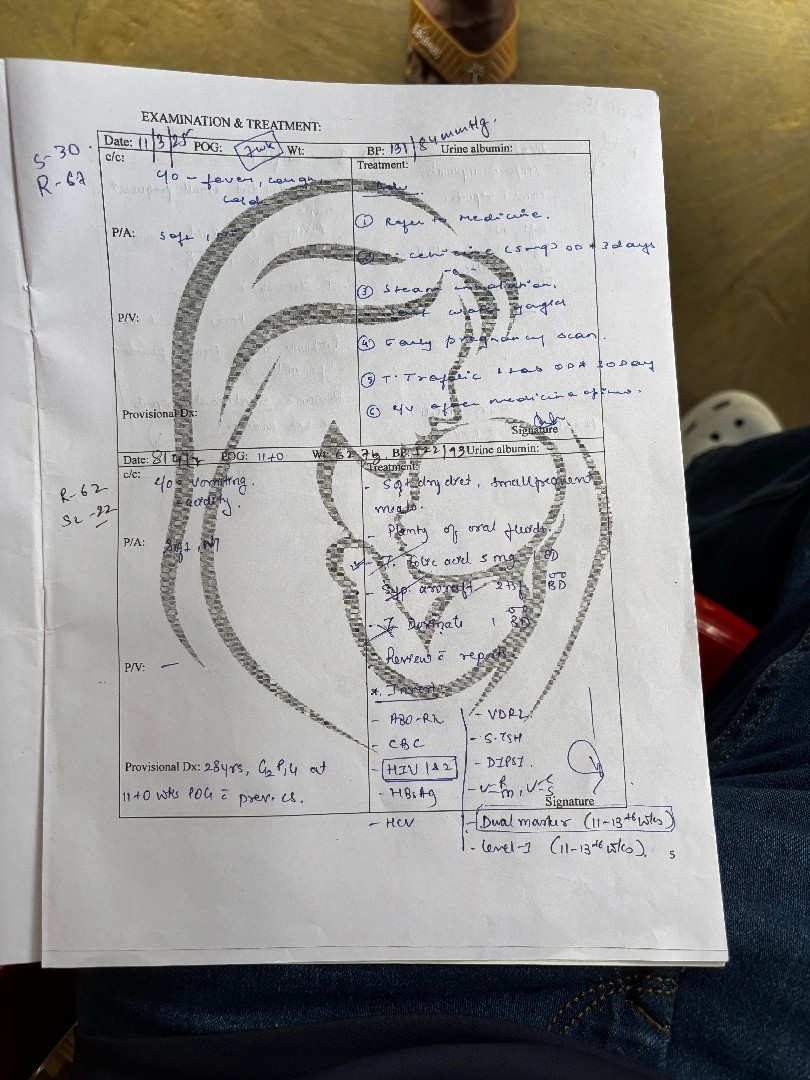 EXAMINATION & TREATMENT:
S-30
R-62
Date: 11/3/25 POG: 7wk Wt: BP: 131/84mmHg. Urine albumin:
c/c:
c/o - fever, cough
cold
Treatment:
Adv.
① Refer to medicine.
P/A: Soft,
(5mg) OD * 3 days
③ Steam inhalation,
P/V:
salt water gargles
④ Early pregnancy scan.
⑤ T. Trafolic 1 tab OD * 30 day
⑥ r/v after medicine
Provisional Dx:
Signature
Date: POG: 11+0 Wt: 62.7kg. BP: 122/93 Urine albumin:
R-62
c/c:
c/o - vomiting.
acidity.
Treatment:
- Soft dry diet, small frequent
meals.
- Plenty of oral fluids.
P/A: Soft, NT
- T. Folic acid 5 mg OD
- Syp. 2tsf BD
- T. 1 BD
P/V: —
Review c̄ reports
*. Invest:
- ABO-Rh
- CBC
- HIV 1&2
- HBsAg
- HCV
- VDRL
- S.TSH
- DIPSI.
- U-R/m, U-C/S
Signature
- Dual marker (11-13+6 wks)
- Level-1 (11-13+6 wks).
Provisional Dx: 28yrs, G2P1L1 at
11+0 wks POG c̄ prev. cs.
5